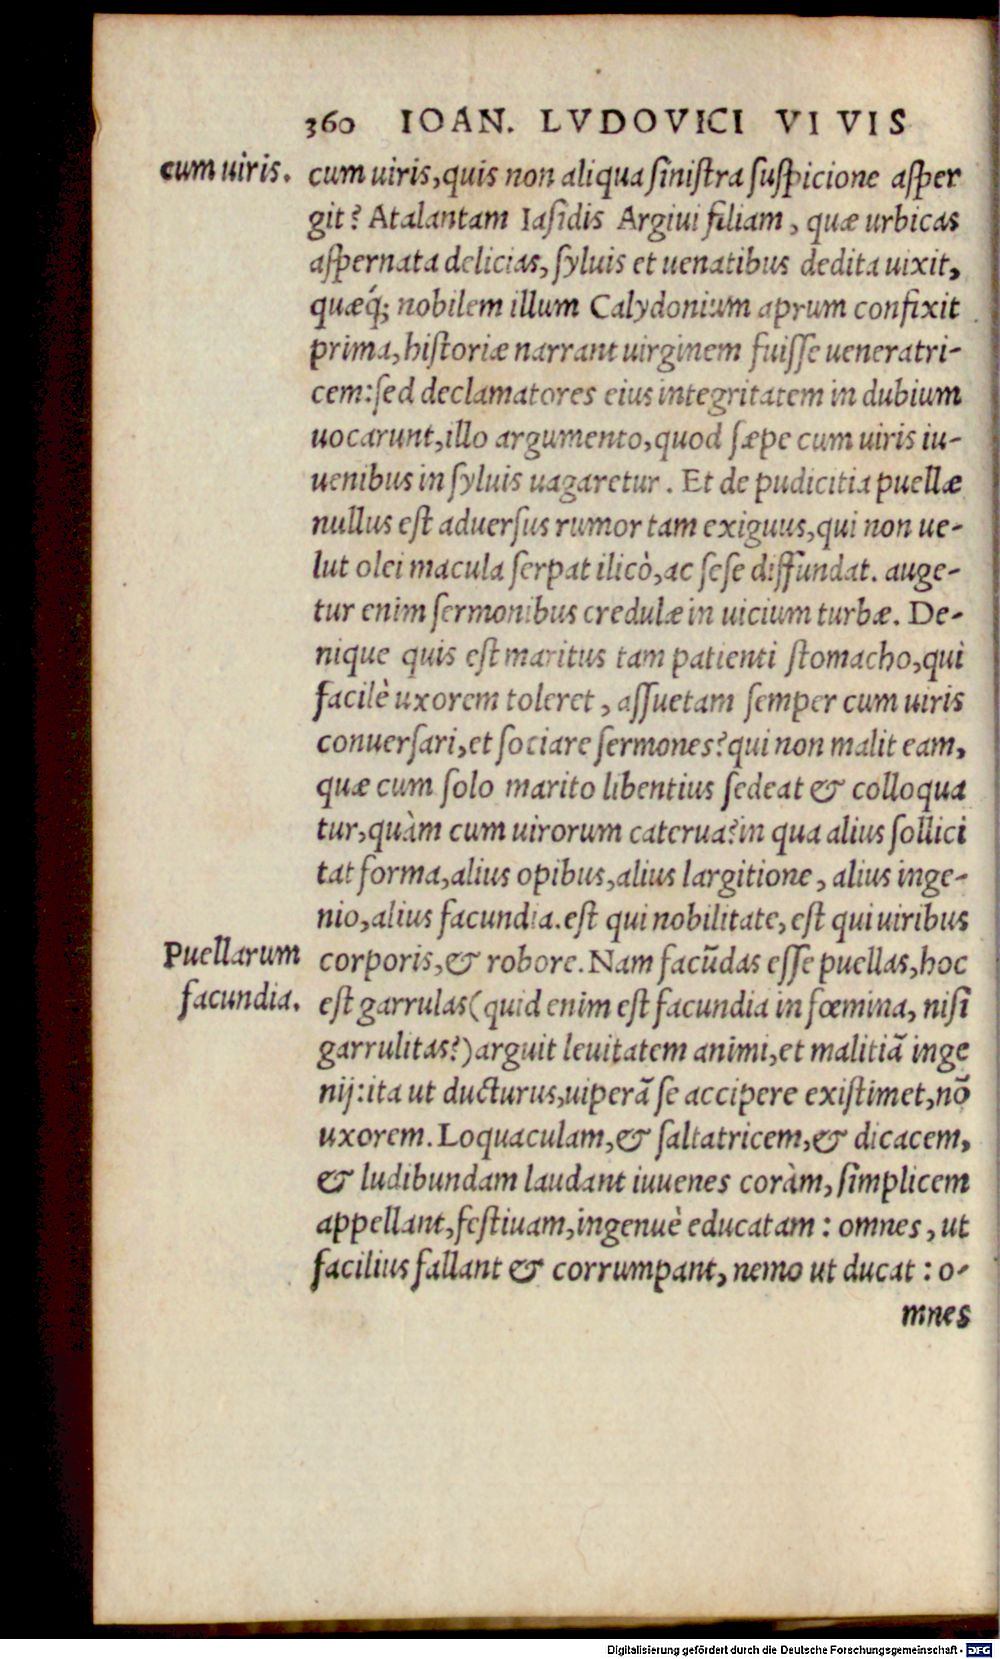 360 IOAN. LVDOVICI VIVIS
cum uiris.
cum uiris, quis non aliqua sinistra suspicione asper
git? Atalantam Iasidis Argiui filiam, quæ urbicas
aspernata delicias, syluis et uenatibus dedita uixit,
quæq́; nobilem illum Calydonium aprum confixit
prima, historiæ narrant uirginem fuisse ueneratri-
cem: sed declamatores eius integritatem in dubium
uocarunt, illo argumento, quod sæpe cum uiris iu-
uenibus in syluis uagaretur. Et de pudicitia puellæ
nullus est aduersus rumor tam exiguus, qui non ue-
lut olei macula serpat ilicò, ac sese diffundat. auge-
tur enim sermonibus credulæ in uicium turbæ. De-
nique quis est maritus tam patienti stomacho, qui
facilè uxorem toleret, assuetam semper cum uiris
conuersari, et sociare sermones? qui non malit eam,
quæ cum solo marito libentius sedeat & colloqua
tur, quàm cum uirorum caterua? in qua alius sollici
tat forma, alius opibus, alius largitione, alius inge-
nio, alius facundia. est qui nobilitate, est qui uiribus
Puellarum
facundia.
corporis, & robore. Nam facūdas esse puellas, hoc
est garrulas (quid enim est facundia in fœmina, nisi
garrulitas?) arguit leuitatem animi, et malitiā inge
nij: ita ut ducturus, uiperā se accipere existimet, nō
uxorem. Loquaculam, & saltatricem, & dicacem,
& ludibundam laudant iuuenes coràm, simplicem
appellant, festiuam, ingenuè educatam: omnes, ut
facilius fallant & corrumpant, nemo ut ducat: o-
mnes
Digitalisierung gefördert durch die Deutsche Forschungsgemeinschaft - DFG